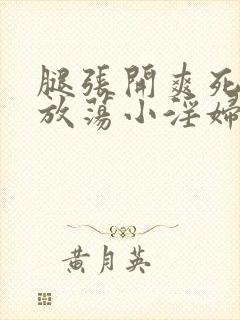 腿张開爽死
放蕩小淫婦
黄月英